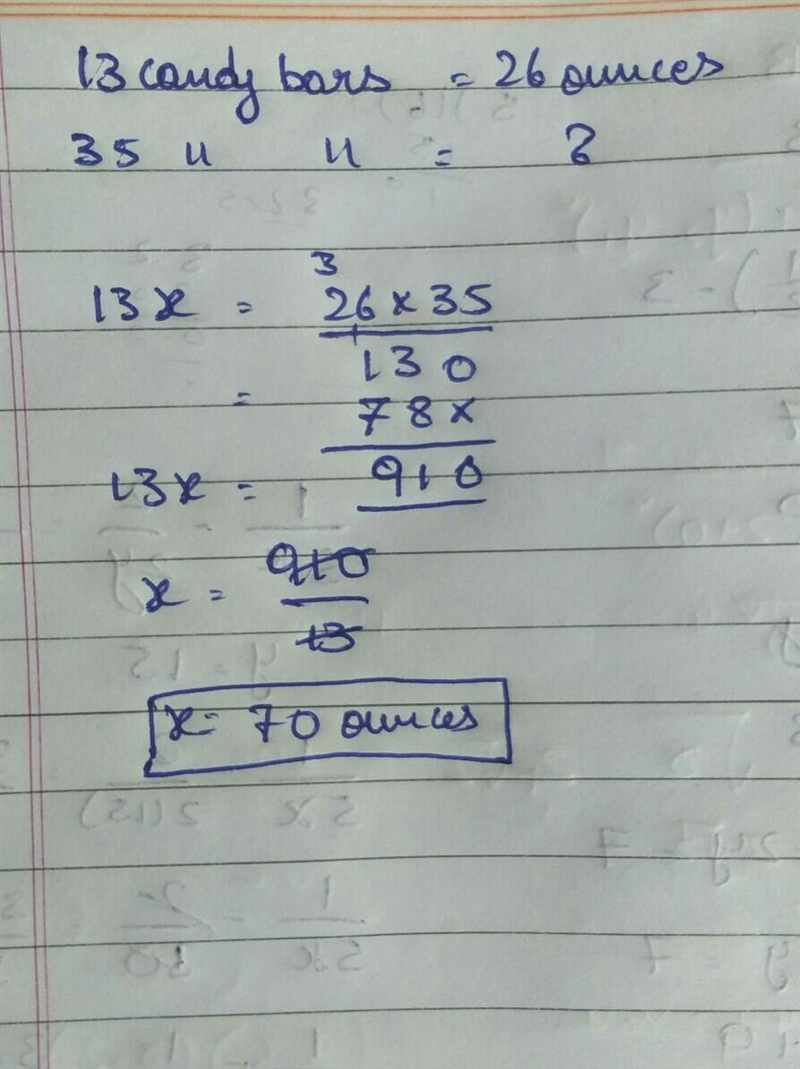 13 candy bars = 26 ounces
35 " " = ?
3
13x = 26 × 35
130
= 78×
13x = 910
x = 910
13
x = 70 ounces